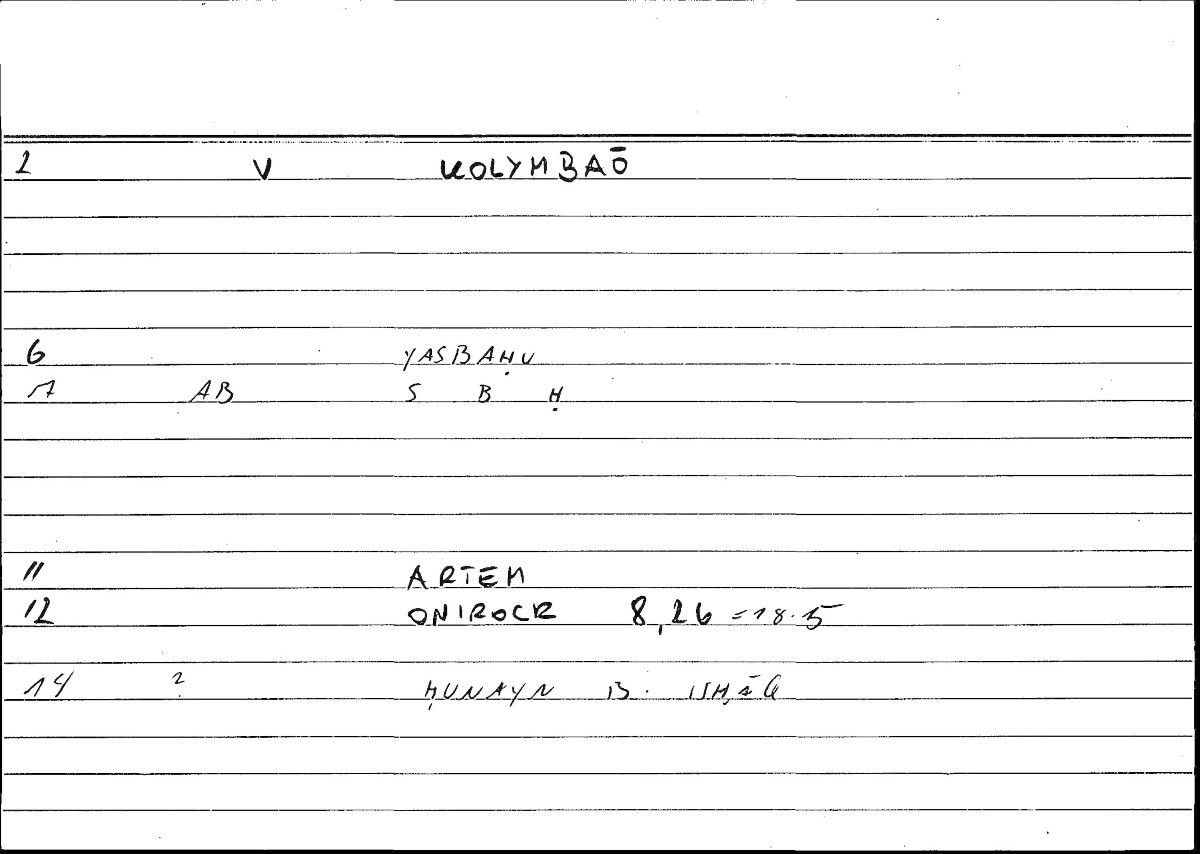 2 V KOLYMBAŌ
6 YASBAḤU
7 AB S B Ḥ
11 ARTEM
12 ONIROCR 8,26 = 18.5
14 ? ḤUNAYN B. ISḤāQ